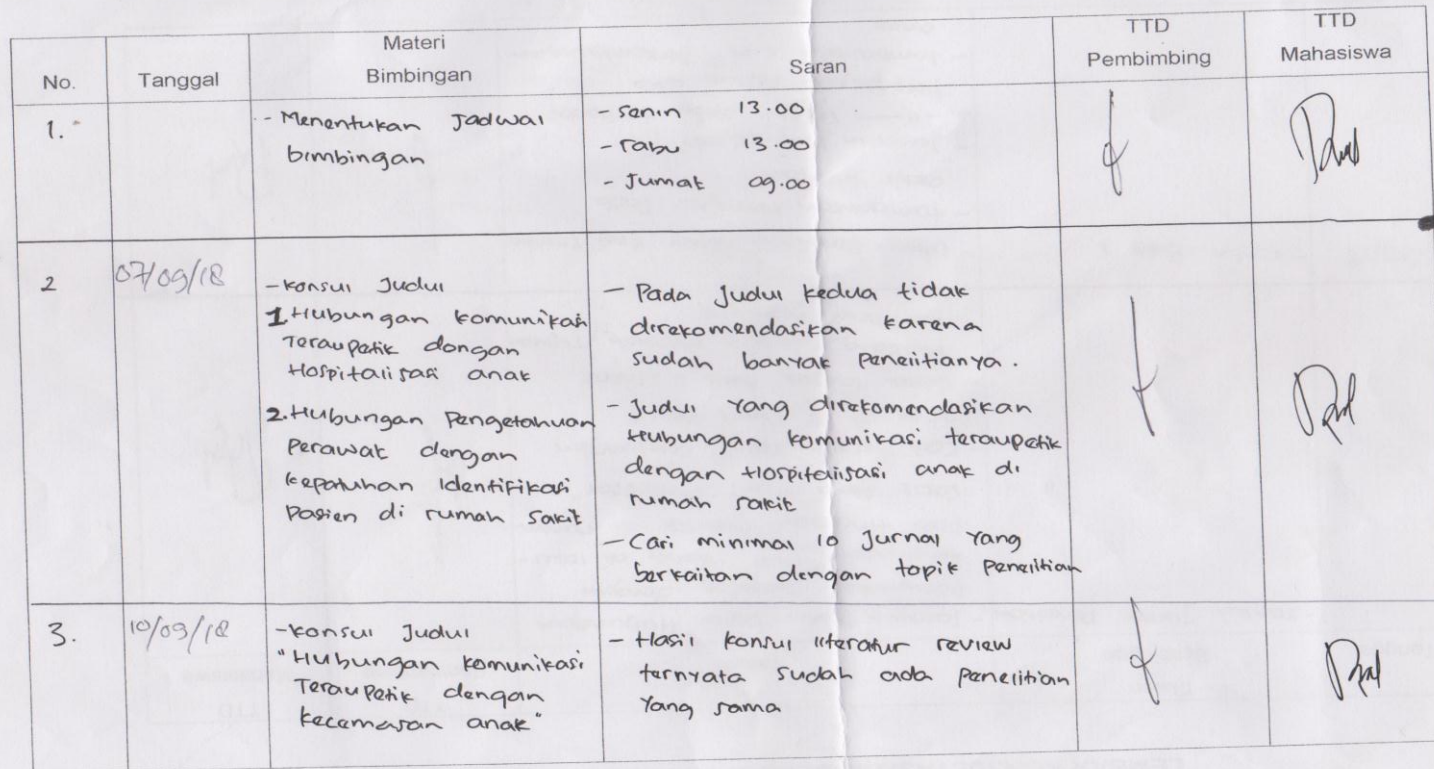 No.
Tanggal
Materi
Bimbingan
Saran
TTD
Pembimbing
TTD
Mahasiswa
1.
- Menentukan Jadwal
bimbingan
- senin 13.00
- rabu 13.00
- Jumat 09.00
2
07/09/18
- konsul Judul
1. Hubungan komunikasi
Teraupetik dengan
Hospitalisasi anak
2. Hubungan Pengetahuan
Perawat dengan
kepatuhan Identifikasi
Pasien di rumah sakit
- Pada Judul kedua tidak
direkomendasikan karena
sudah banyak penelitianya.
- Judul Yang direkomendasikan
Hubungan komunikasi teraupetik
dengan Hospitalisasi anak di
rumah sakit
- Cari minimal 10 Jurnal Yang
berkaitan dengan topik Penelitian
3.
10/09/18
- konsul Judul
"Hubungan komunikasi
Teraupetik dengan
kecemasan anak"
- Hasil konsul literatur review
ternyata sudah ada penelitian
Yang sama